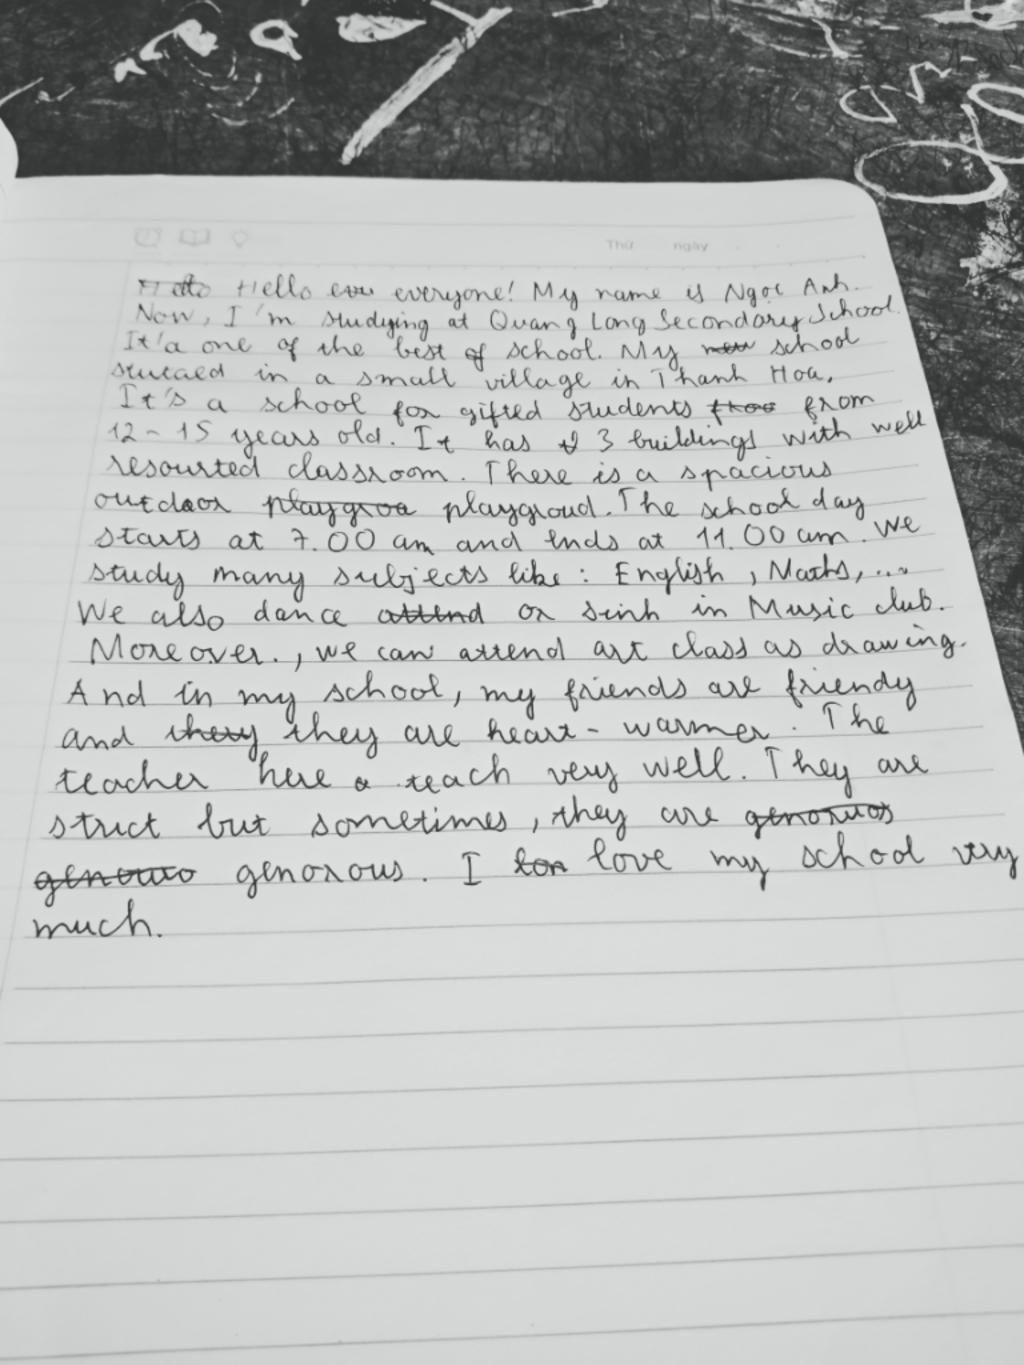 Thứ ngày
Hello everyone! My name is Ngọc Anh.
Now, I'm studying at Quang Long Secondary School.
It'a one of the best of school. My school
stucaed in a small village in Thanh Hoa.
It's a school for gifted students from
12-15 years old. It has 3 buildings with well
resourted classroom. There is a spacious
outdoor playgroud. The school day
starts at 7.00 am and ends at 11.00 am. We
study many subjects like: English, Maths,...
We also dance or sinh in Music club.
Moreover., we can attend art class as drawing.
And in my school, my friends are friendy
and they are heart-warmer. The
teacher here teach very well. They are
strict but sometimes, they are
genorous. I love my school very
much.